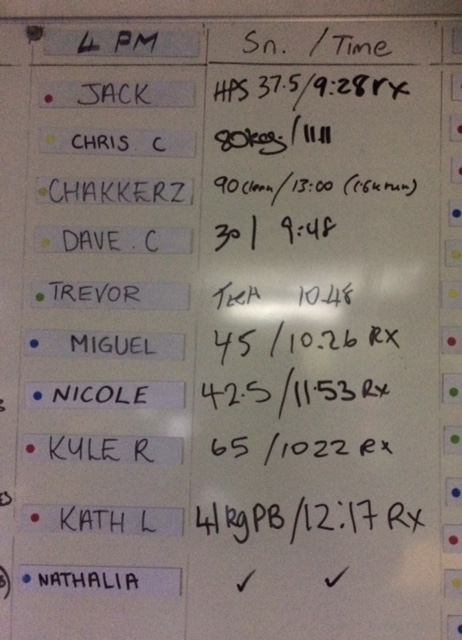 4 PM Sn. / Time
JACK HPS 37.5/9:28 rx
CHRIS C 80kg / 11.11
CHAKKERZ 90 clean / 13:00 (1.6k run)
DAVE . C 30 | 9:48
TREVOR Tech 10.48
MIGUEL 45 / 10.26 RX
NICOLE 42.5 / 11.53 Rx
KYLE R 65 / 1022 Rx
KATH L 41kg PB / 12:17 Rx
NATHALIA ✓ ✓